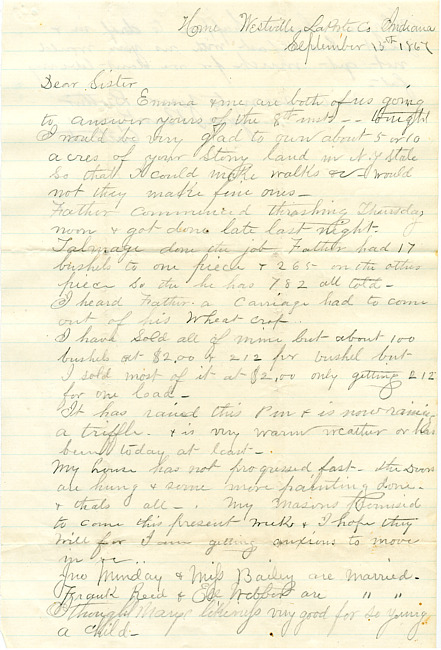 Home Westville, LaPorte Co. Indiana
September 15th 1867
Dear Sister
Emma & me are both of us going
to answer yours of the 8th inst -- tonight
I would be very glad to own about 5 or 10
acres of your Stony land in N. Y State
So that I could make walks &c - would
not they make fine ones -
Father commenced thrashing Thursday
noon & got done late last night.
Talmage done the job. Father had 17
bushels to one piece & 265 on the other
piece So the he has 782 all told -
I heard Father a Carriage had to come
out of his Wheat crop.
I have Sold all of mine but about 100
bushels at $2,00 & 212 per bushel but
I sold most of it at $2,00 only getting 212
for one load -
It has rained this P.m & is now raining
a triffle - & is very warm weather or has
been today at least -
My house has not progressed fast - the doors
are hung & some more painting done -
& thats all - . My Masons Promised
to come this present week & I hope they
will for I am getting anxious to move
in &c ..
Jno Munday & Miss Bailey are Married -
Frank Reid & Webber are " "
I thought Marys likeness very good for So young
a child -